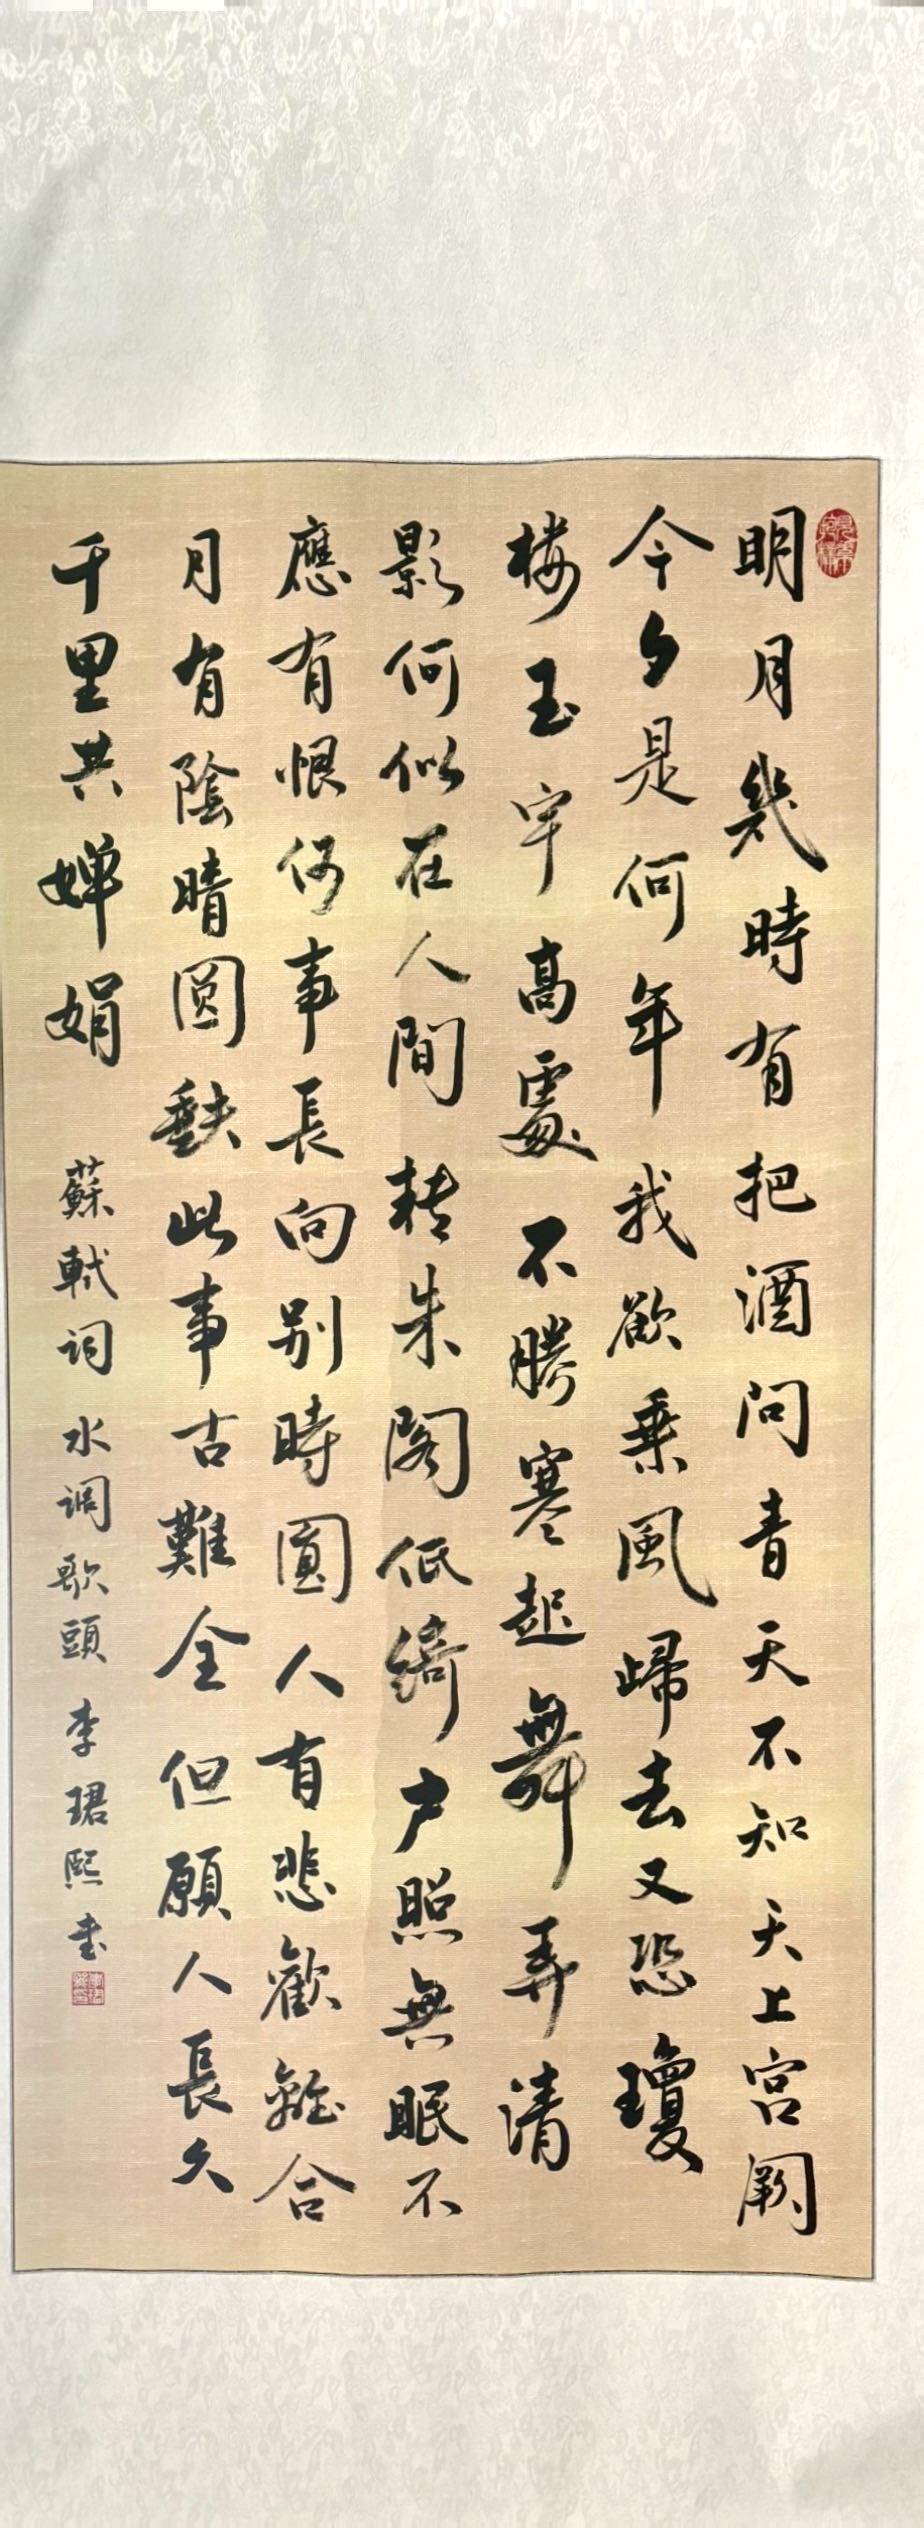 明月幾時有把酒問青天不知天上宮闕
今夕是何年我欲乘風歸去又恐瓊
楼玉宇高處不勝寒起舞弄清
影何似在人間轉朱閣低綺户照無眠不
應有恨何事長向别時圓人有悲歡離合
月有陰晴圓缺此事古難全但願人長久
千里共嬋娟 蘇軾詞 水调歌頭 李珺熙 书